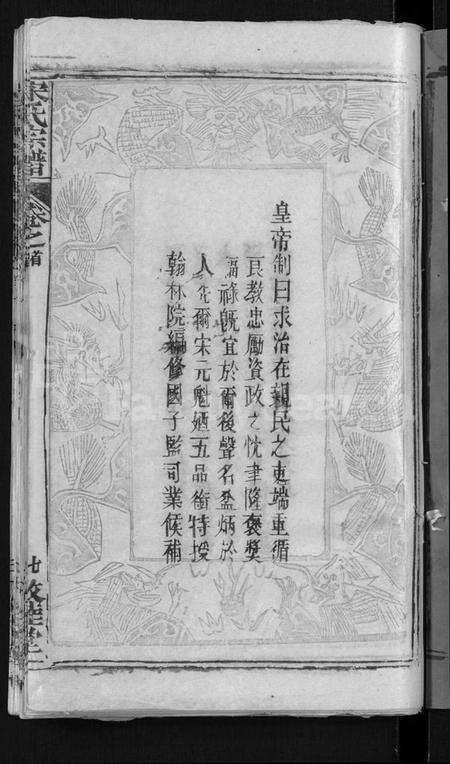 皇帝制曰求治在親民之吏端重循
良教忠勵資政之忱聿隆褒奬
福祿既宜於爾後聲名益炳於
人 爾宋元魁廼五品銜特授
翰林院編修國子監司業候補
宋氏宗譜
卷之首